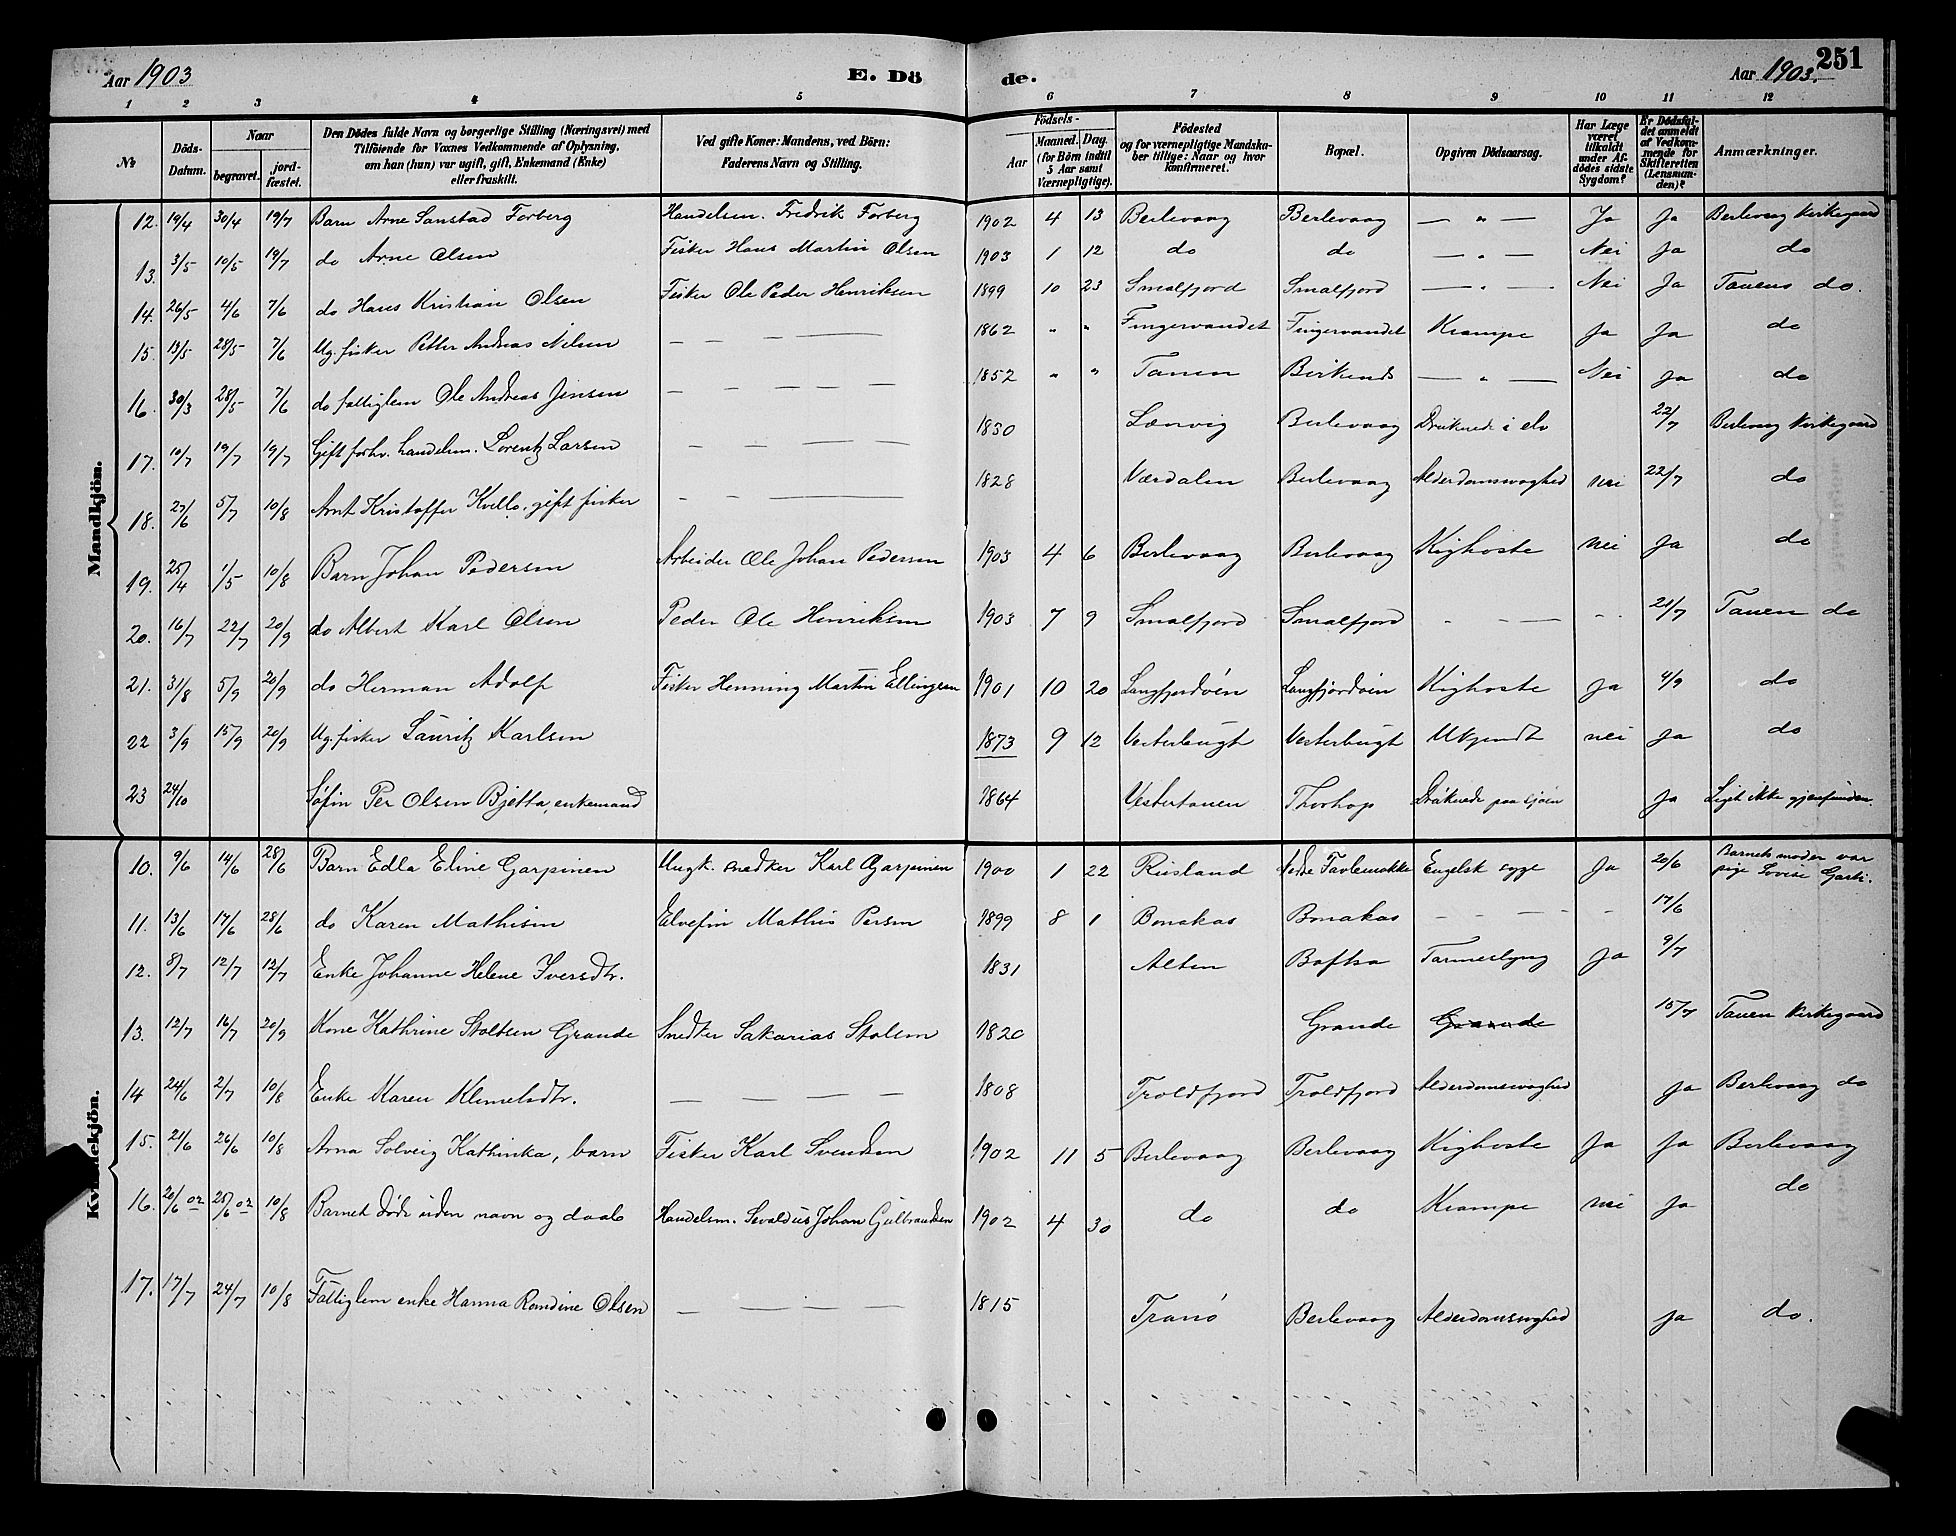 251
Aar 1903
E. Dö
de.
Aar 1903.
1 2 3 4 5 6 7 8 9 10 11 12
No
Döds-Datum.
Naar
begravet.
jord-fæstet.
Den Dödes fulde Navn og borgerlige Stilling (Næringsvei) med
Tilföiende for Voxnes Vedkommende af Oplysning,
om han (hun) var ugift, gift, Enkemand (Enke)
eller fraskilt.
Ved gifte Koner: Mandens, ved Börn:
Faderens Navn og Stilling.
Födsels-
Aar
Maaned. Dag.
(for Börn indtil
5 Aar samt
Værnepligtige).
Födested
og for værnepligtige Mandska-
ber tillige: Naar og hvor
konfirmeret.
Bopæl.
Opgiven Dödsaarsag.
Har Læge
været
tilkaldt
under Af-
dödes sidste
Sygdom?
Er Dödsfal-
det anmeldt
af Vedkom-
mende for
Skifteretten
(Lensman-
den)?
Anmærkninger.
Mandkjön.
12. 19/4 30/4 19/7 Barn Arne Sanstad Forberg Handelsm. Fredrik Forberg 1902 4 13 Berlevaag Berlevaag — " — Ja Ja Berlevaag Kirkegaard
13. 3/5 10/5 19/7 do Arne Olsen Fisker Hans Martin Olsen 1903 1 12 do do — " — Nei Ja do
14. 26/5 4/6 7/6 do Hans Kristian Olsen Fisker Ole Peder Henriksen 1899 10 23 Smalfjord Smalfjord — " — Nei Ja Tanens do.
15. 19/5 28/5 7/6 Ug. fisker Petter Andreas Nilsen — — — — 1862 " " Fingervandet Fingervandet Krampe Ja Ja do
16. 30/3 28/5 7/6 do fattiglem Ole Andreas Jensen — — — — 1852 " " Tanen Birkends — " — Nei Ja do
17. 10/7 19/7 19/7 Gift forhv. handelsm. Lorentz Larsen — — — — 1830 Lænvig Berlevaag Druknede i elv 22/7 Berlevaag Kirkegaard
18. 27/6 5/7 10/8 Arnt Kristoffer Kvello, gift fisker — — — 1828 Værdalen Berlevaag Alderdomsvaghed nei 22/7 do
19. 25/4 1/5 10/8 Barn Johan Pedersen Arbeider Ole Johan Pedersen 1903 4 6 Berlevaag Berlevaag Kighoste nei Ja do
20. 16/7 22/7 20/9 do Albert Karl Olsen Peder Ole Henriksen 1903 7 9 Smalfjord Smalfjord - - — - - 21/7 Tanen do
21. 31/8 5/9 20/9 do Herman Adolf Fisker Henning Martin Ellingsen 1901 10 20 Langfjordvén Langfjordvén Kighoste Ja 4/9 do
22 3/9 15/9 20/9 Ug. fisker Lauritz Karlsen 1873 9 12 Vesterbugt Vesterbugt Ukjendt nei Ja do
23 24/10 Søfin Per Olsen Bjetta, enkemand 1864 Vestertanen Thorhop Druknede paa sjøen Ja Liget ikke gjenfunden.
Kvindekjön.
10. 9/6 14/6 28/6 Barn Edla Eline Garpinen Ungk. snedker Karl Garpinen 1900 1 22 Rusland Nedre Engelsk syge Ja 20/6 Barnets moder var pige Lovise
11. 13/6 17/6 28/6 do Karen Mathisen Elvefin Mathis Persen 1899 8 1 Bonakas Bonakas - - — - - 17/6
12. 8/7 12/7 12/7 Enke Johanne Helene Iversdtr. 1831 Alten Boftsa Tarmeslyng Ja 9/7
13. 12/7 16/7 20/9 Kone Kathrine Stoltsen Grande Snedker Sakarias Stolsen 1820 Grande Grande 15/7 Tanen Kirkegaard
14 24/6 2/7 10/8 Enke Karen Klemetsdtr. — — — — 1808 Troldfjord Troldfjord Alderdomsvaghed Ja Berlevaag do
15. 21/6 26/6 10/8 Arna Solveig Kathinka, barn Fisker Karl Svendsen 1902 11 5 Berlevaag Berlevaag Kighoste Ja Ja Berlevaag
16. 20/6 02 25/6 02 10/8 Barnet døde uden navn og daab Handelsm. Sevaldus Johan Gulbrandsen 1902 4 30 do do Krampe nei Ja do
17. 17/7 24/7 10/8 Fattiglem enke Hanna Romdine Olsen — — — — 1815 Tranö Berlevaag Alderdomsvaghed Ja do.